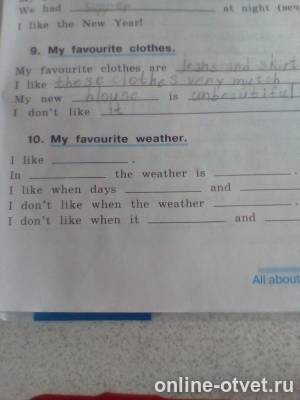 We had supper at night
I like the New Year!
9. My favourite clothes.
My favourite clothes are jeans and skirt
I like these clothes very mutsh
My new blouse is unbeautiful
I don't like it
10. My favourite weather.
I like ________ .
In ________ the weather is ________ .
I like when days ________ and ________
I don't like when the weather ________ .
I don't like when it ________ and ________
All about
online-otvet.ru